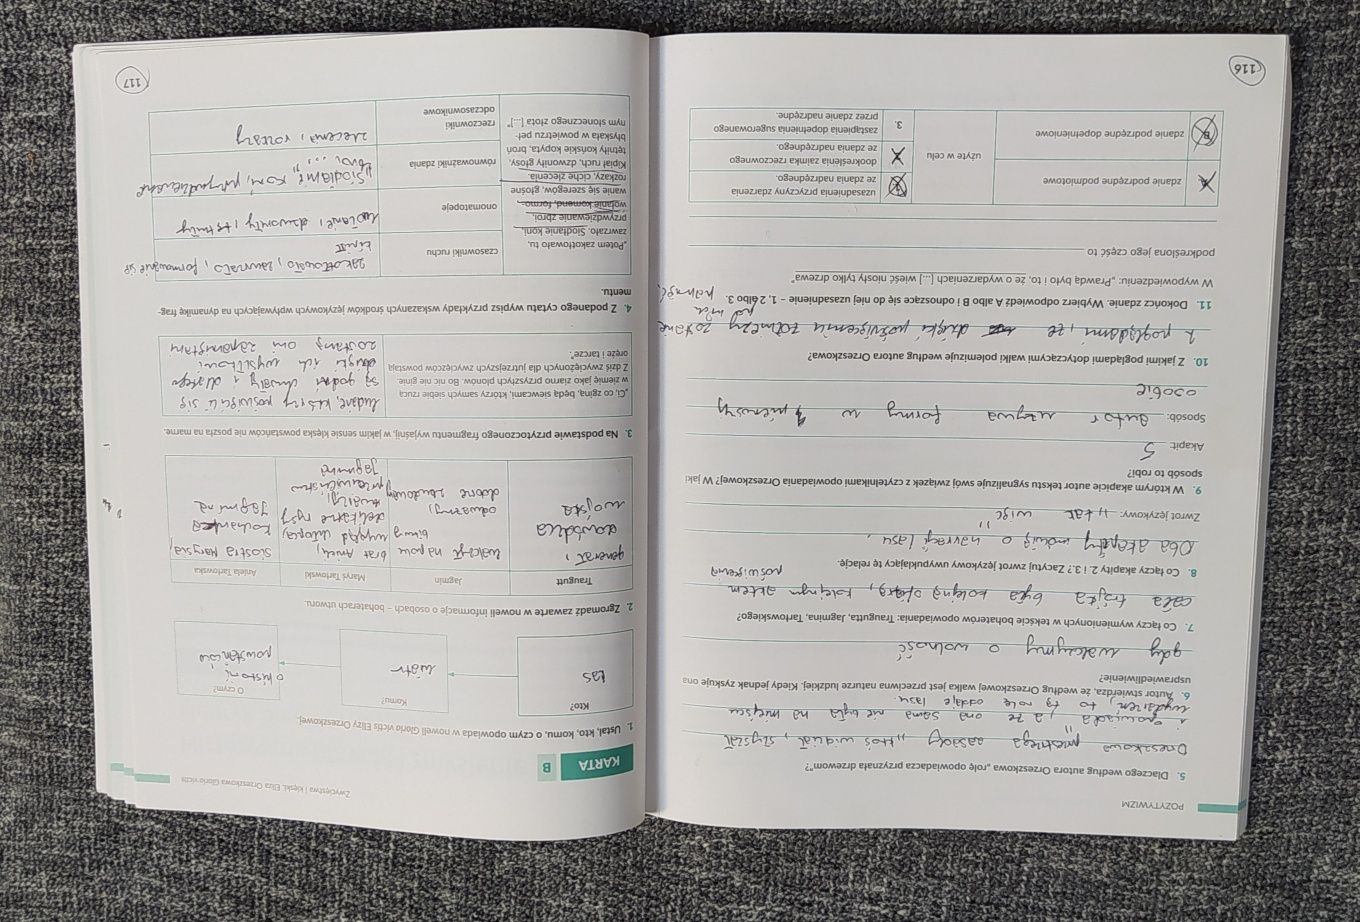 POZYTYWIZM
5. Dlaczego według autora Orzeszkowa „rolę opowiadacza przyznała drzewom"?
Orzeszkowa przestrzega zasady „ktoś widział, słyszał
i opowiada", a że ona sama nie była na miejscu
wydarzeń, to tą rolę oddaje lasu.
6. Autor stwierdza, że według Orzeszkowej walka jest przeciwna naturze ludzkiej. Kiedy jednak zyskuje ona
usprawiedliwienie?
gdy walczymy o wolność
7. Co łączy wymienionych w tekście bohaterów opowiadania: Traugutta, Jagmina, Tarłowskiego?
cała trójka była kolejną ofiarą, kolejnym aktem
poświęcenia
8. Co łączy akapity 2. i 3.? Zacytuj zwrot językowy uwypuklający tę relację.
Oba akapity mówią o narracji lasu.
Zwrot językowy: „tak więc"
9. W którym akapicie autor tekstu sygnalizuje swój związek z czytelnikami opowiadania Orzeszkowej? W jaki
sposób to robi?
Akapit: 5
Sposób: autor używa formy w 1 pierwszej
osobie
10. Z jakimi poglądami dotyczącymi walki polemizuje według autora Orzeszkowa?
z poglądami, że dzięki poświęceniu żołnierzy zostanie
po nich pamięć.
11. Dokończ zdanie. Wybierz odpowiedź A albo B i odnoszące się do niej uzasadnienie – 1, 2 albo 3.
W wypowiedzeniu: „Prawdą było i to, że o wydarzeniach [...] wieść niosły tylko drzewa"
podkreślona jego część to
A. zdanie podrzędne podmiotowe
B. zdanie podrzędne dopełnieniowe
użyte w celu
1. uzasadnienia przyczyny zdarzenia
ze zdania nadrzędnego.
2. dookreślenia zaimka rzeczownego
ze zdania nadrzędnego.
3. zastąpienia dopełnienia sugerowanego
przez zdanie nadrzędne.
116
Zwycięstwa i klęski. Eliza Orzeszkowa Gloria victis
KARTA B
1. Ustal, kto, komu, o czym opowiada w noweli Gloria victis Elizy Orzeszkowej.
Kto?
Las
Komu?
wiatr
O czym?
o historii
powstańców
2. Zgromadź zawarte w noweli informacje o osobach – bohaterach utworu.
Traugutt
Jagmin
Maryś Tarłowski
Aniela Tarłowska
generał,
dowódca
wojska
walczył na polu
bitwy
odważny,
dobrze zbudowany
brat Anieli,
wygląd chłopca,
delikatne rysy
twarzy,
przyjaciel
Jagmina
siostra Marysia,
kochanka
Jagmina
3. Na podstawie przytoczonego fragmentu wyjaśnij, w jakim sensie klęska powstańców nie poszła na marne.
„Ci, co zginą, będą siewcami, którzy samych siebie rzucą
w ziemię jako ziarno przyszłych plonów. Bo nic nie ginie.
Z dziś zwyciężonych dla jutrzejszych zwycięzców powstają
oręże i tarcze".
ludzie, którzy poświęcili się
są godni chwały i dlatego
dzięki ich wysiłkowi
zostaną oni zapamiętani
4. Z podanego cytatu wypisz przykłady wskazanych środków językowych wpływających na dynamikę frag-
mentu.
„Potem zakotłowało tu,
zawrzało. Siodłanie koni,
przywdziewanie zbroi,
wołanie komend, formo-
wanie się szeregów, głośne
rozkazy, ciche zlecenia.
Kipiał ruch, dzwoniły głosy,
tętniły końskie kopyta, broń
błyskała w powietrzu peł-
nym słonecznego złota [...]"
czasowniki ruchu
zakotłowało, zawrzało, formowanie się
kipiał
onomatopeje
wołanie, dzwoniły, tętniły
równoważniki zdania
„Siodłanie koni, przywdziewanie
broi, ...."
rzeczowniki
odczasownikowe
zlecenia, rozkazy
117